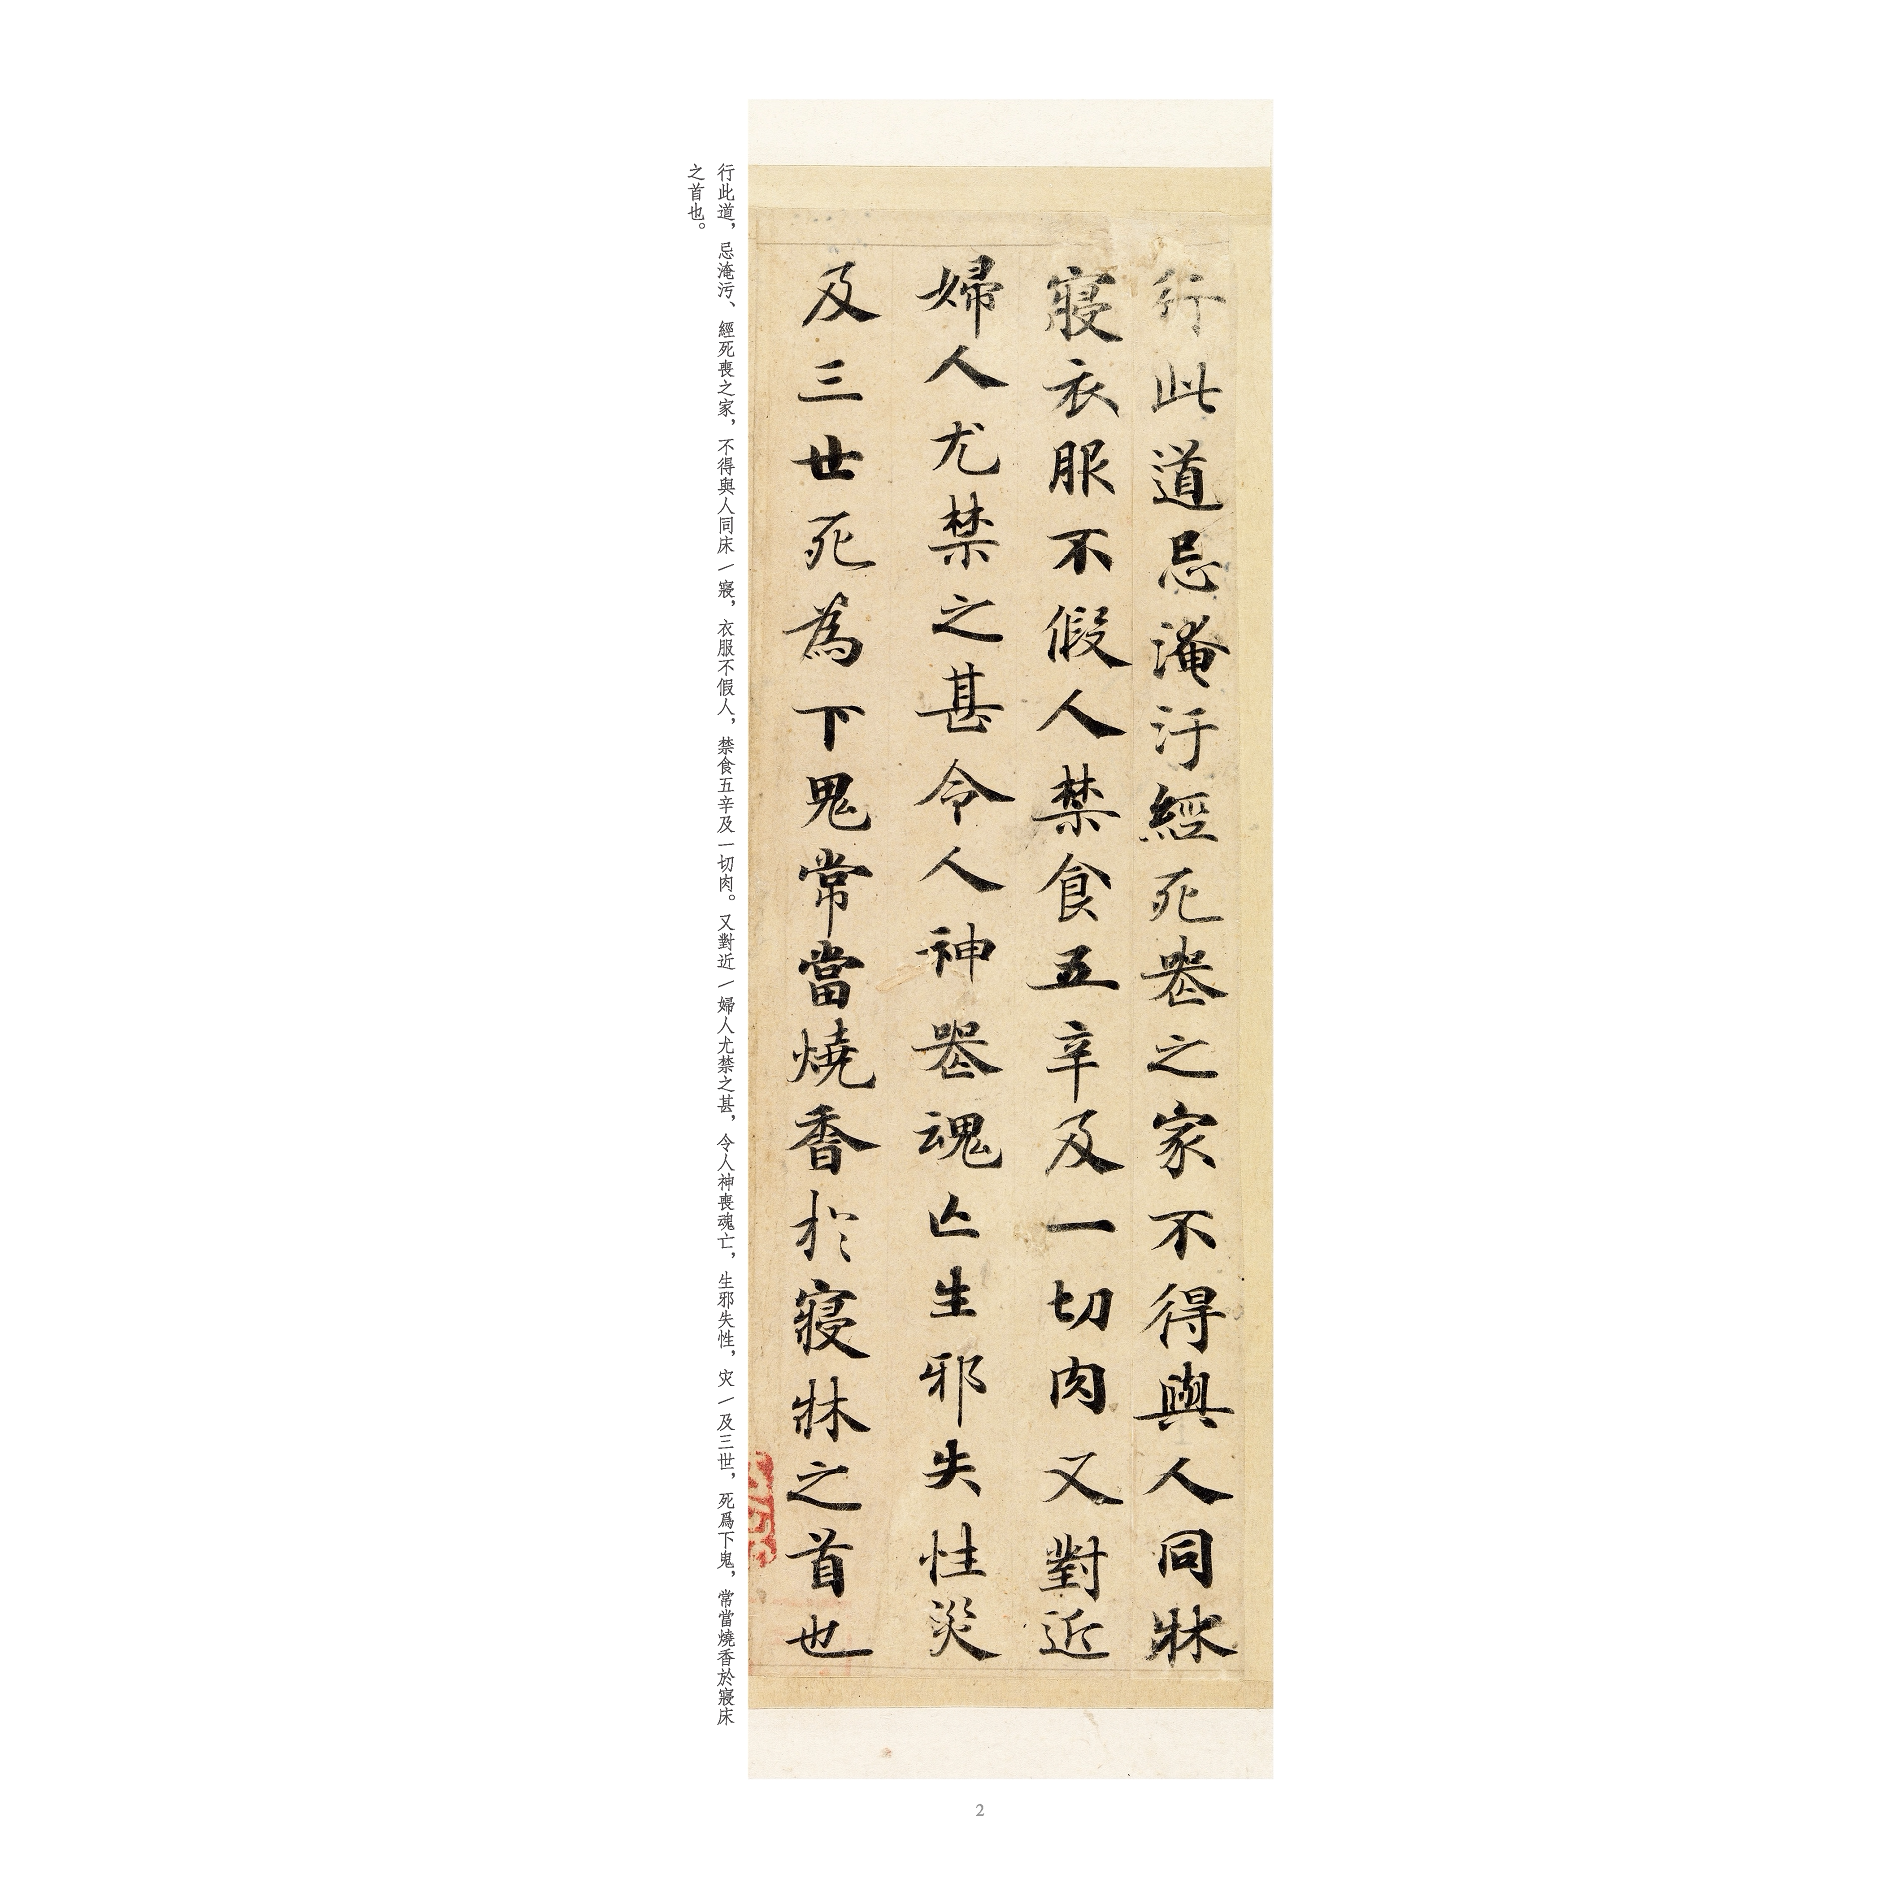 行此道忌淹汙經死喪之家不得與人同牀
寢衣服不假人禁食五辛及一切肉又對近
婦人尤禁之甚令人神喪魂亡生邪失性災
及三世死為下鬼常當燒香於寢牀之首也
行此道，忌淹污、經死喪之家，不得與人同床/寢，衣服不假人，禁食五辛及一切肉。又對近/婦人尤禁之甚，令人神喪魂亡，生邪失性，灾/及三世，死爲下鬼，常當燒香於寢床
之首也。
2